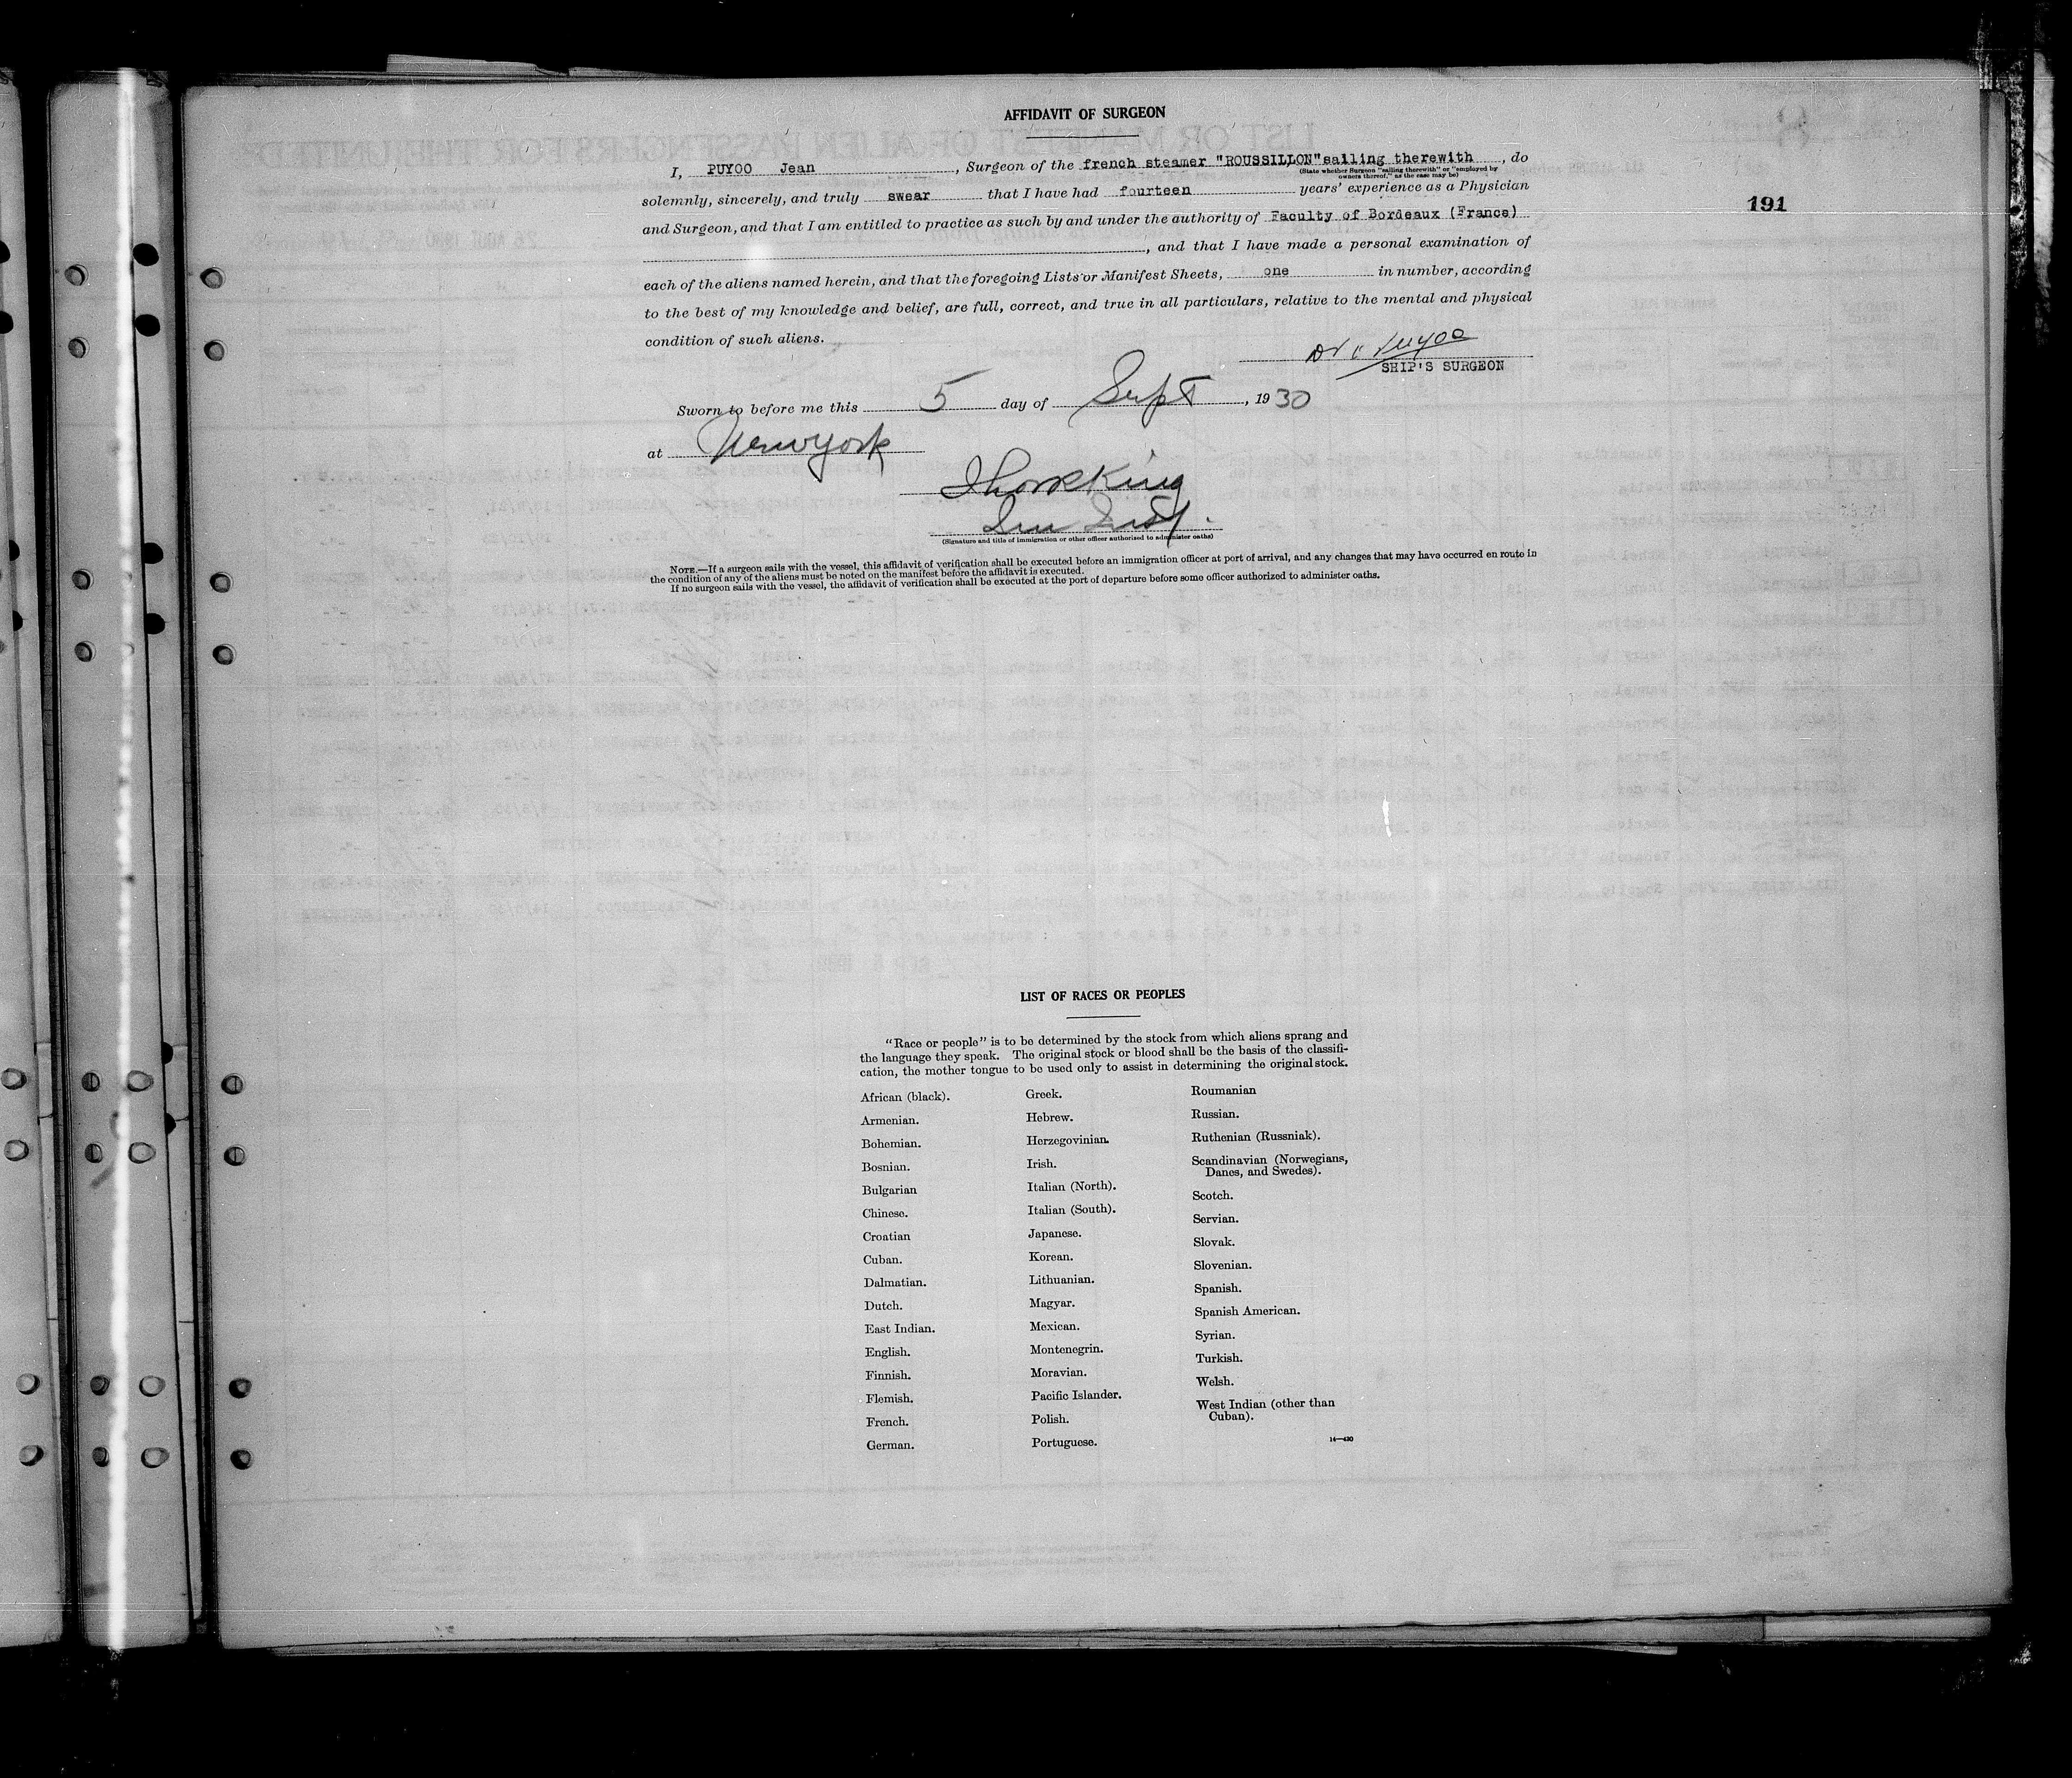 AFFIDAVIT OF SURGEON
I, PUYOO Jean, Surgeon of the french steamer "ROUSSILLON" sailing therewith, do
(State whether Surgeon "sailing therewith" or "employed by
owners thereof," as the case may be)
solemnly, sincerely, and truly swear that I have had fourteen years' experience as a Physician
191
and Surgeon, and that I am entitled to practice as such by and under the authority of Faculty of Bordeaux (France)
, and that I have made a personal examination of
each of the aliens named herein, and that the foregoing Lists or Manifest Sheets, one in number, according
to the best of my knowledge and belief, are full, correct, and true in all particulars, relative to the mental and physical
condition of such aliens.
SHIP'S SURGEON
Sworn to before me this 5 day of Sept, 1930
at New York
(Signature and title of immigration or other officer authorized to administer oaths)
NOTE.—If a surgeon sails with the vessel, this affidavit of verification shall be executed before an immigration officer at port of arrival, and any changes that may have occurred en route in
the condition of any of the aliens must be noted on the manifest before the affidavit is executed.
If no surgeon sails with the vessel, the affidavit of verification shall be executed at the port of departure before some officer authorized to administer oaths.
LIST OF RACES OR PEOPLES
"Race or people" is to be determined by the stock from which aliens sprang and
the language they speak. The original stock or blood shall be the basis of the classifi-
cation, the mother tongue to be used only to assist in determining the original stock.
African (black).
Armenian.
Bohemian.
Bosnian.
Bulgarian
Chinese.
Croatian
Cuban.
Dalmatian.
Dutch.
East Indian.
English.
Finnish.
Flemish.
French.
German.
Greek.
Hebrew.
Herzegovinian.
Irish.
Italian (North).
Italian (South).
Japanese.
Korean.
Lithuanian.
Magyar.
Mexican.
Montenegrin.
Moravian.
Pacific Islander.
Polish.
Portuguese.
Roumanian
Russian.
Ruthenian (Russniak).
Scandinavian (Norwegians,
Danes, and Swedes).
Scotch.
Servian.
Slovak.
Slovenian.
Spanish.
Spanish American.
Syrian.
Turkish.
Welsh.
West Indian (other than
Cuban).